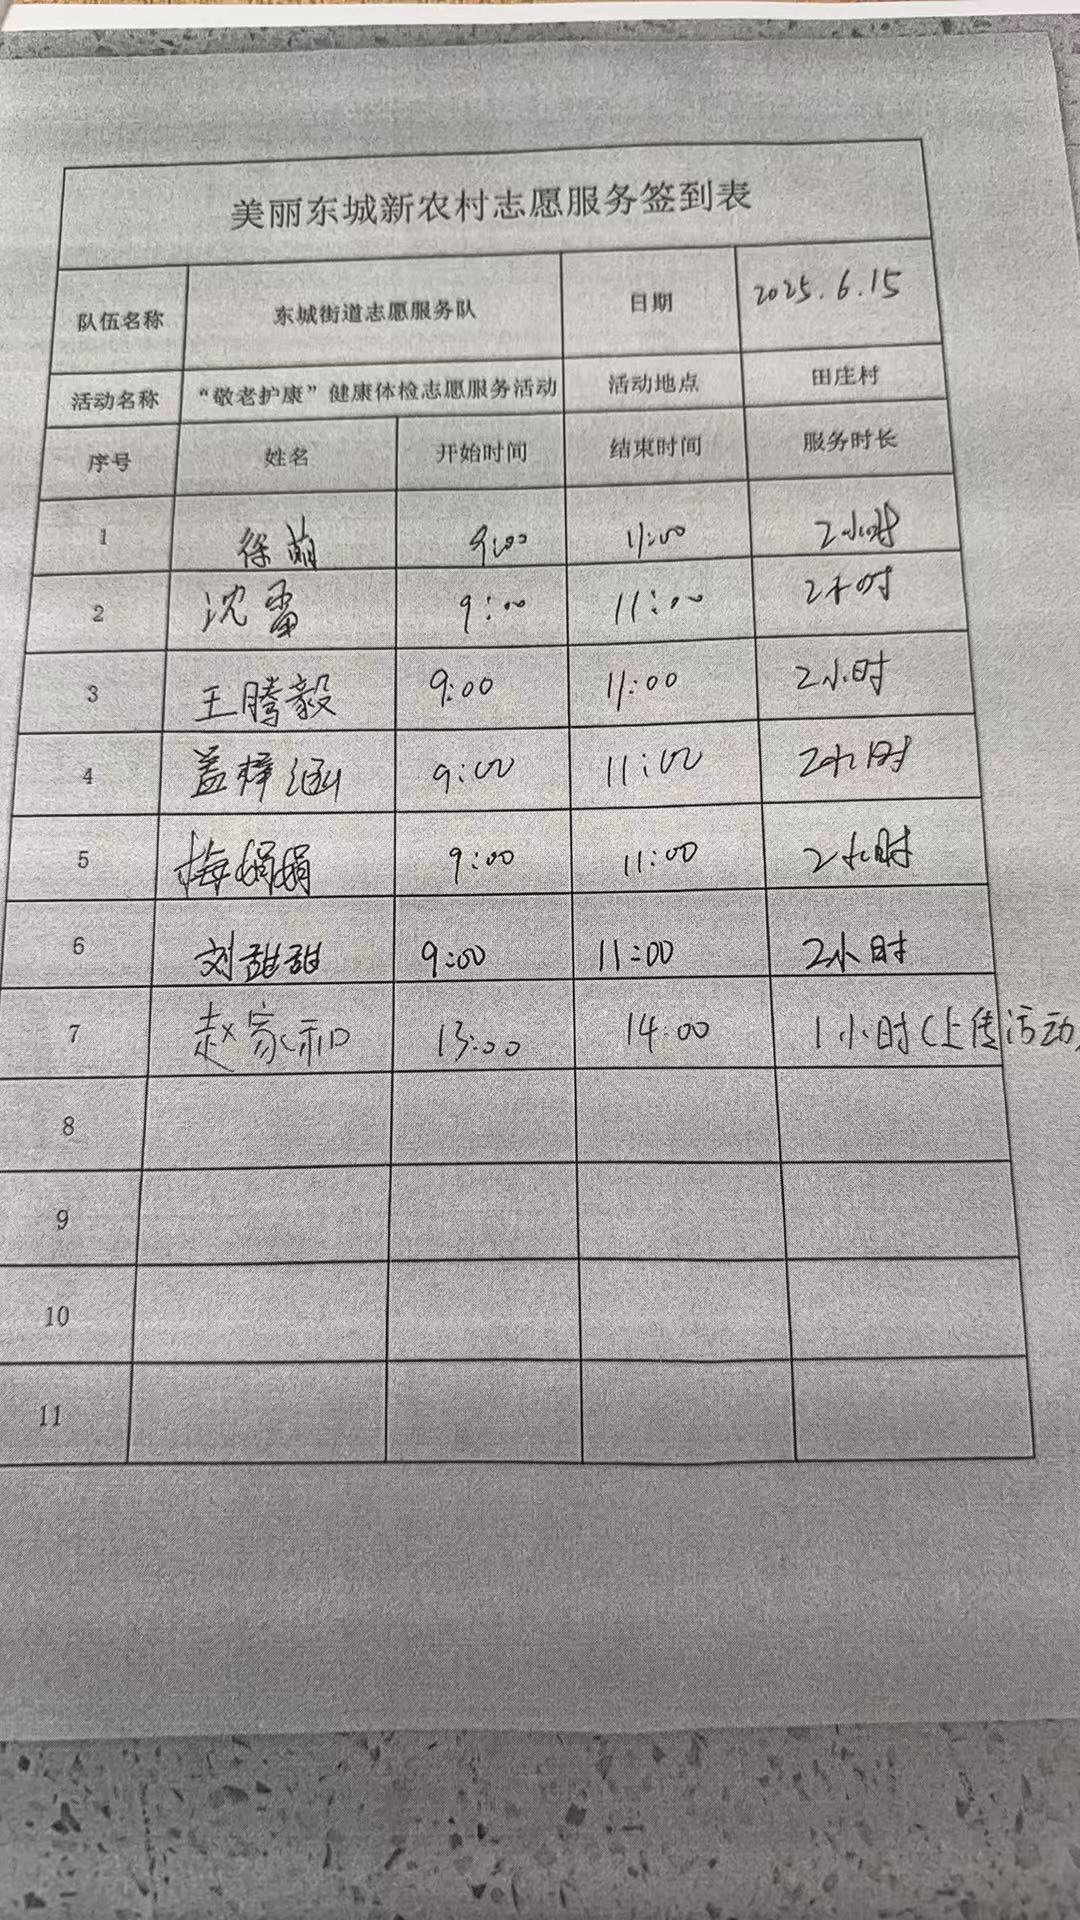 美丽东城新农村志愿服务签到表
队伍名称 东城街道志愿服务队 日期 2025.6.15
活动名称 “敬老护康”健康体检志愿服务活动 活动地点 田庄村
序号 姓名 开始时间 结束时间 服务时长
1 徐萌 9:00 11:00 2小时
2 沈雷 9:00 11:00 2小时
3 王腾毅 9:00 11:00 2小时
4 盖梓涵 9:00 11:00 2小时
5 梅娟娟 9:00 11:00 2小时
6 刘甜甜 9:00 11:00 2小时
7 赵家和 13:00 14:00 1小时(上传活动)
8
9
10
11